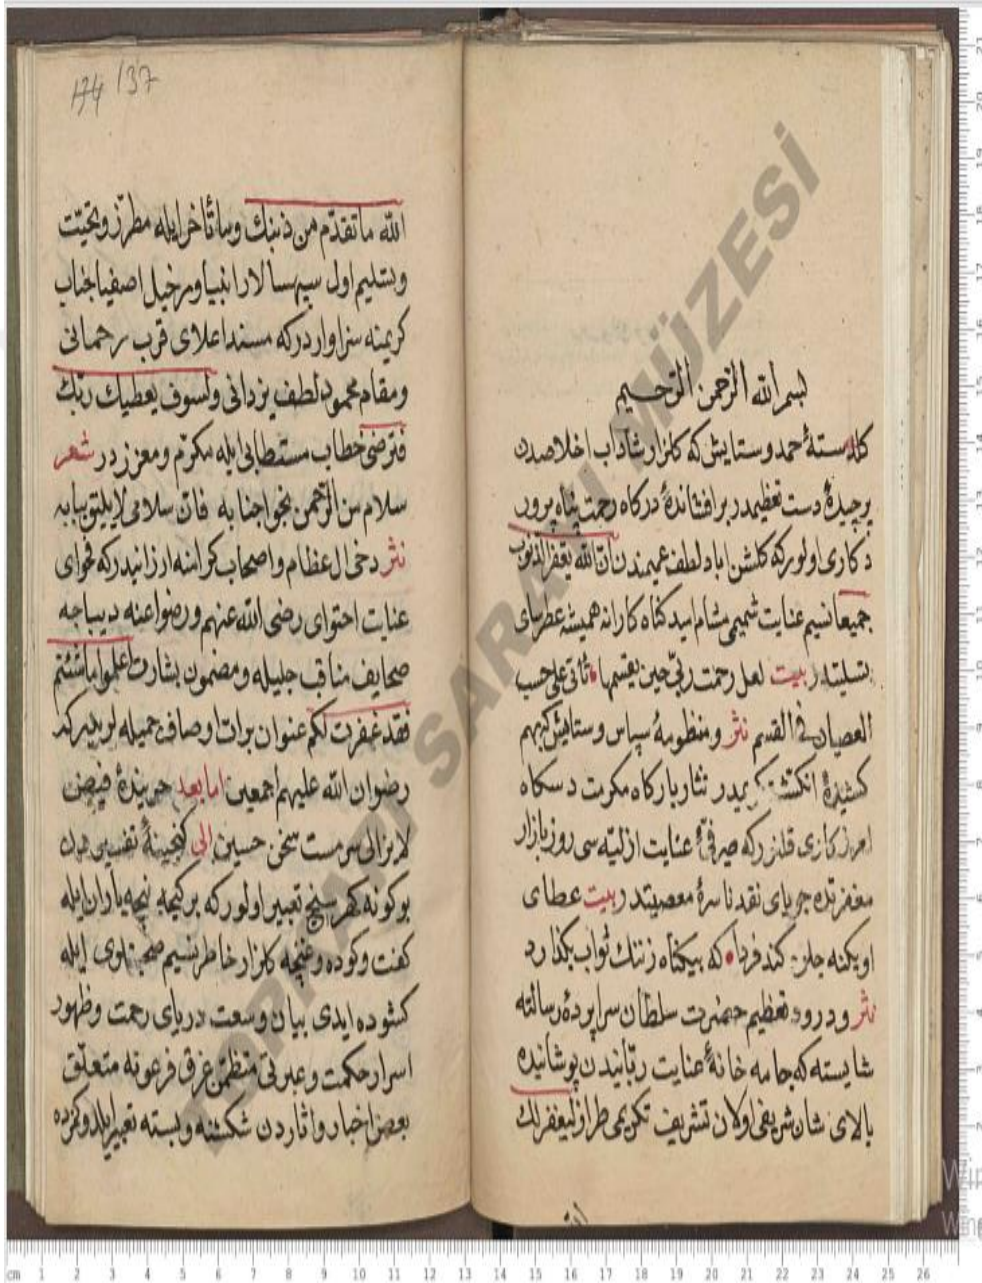 بسم الله الرحمن الرحيم
كلدستۀ حمد وستايش كه كلزار شاداب اخلاصدن
برچيدۀ دست تعظيمدر برافشاندۀ دركاه رحمت پناه پرور
دكارى اولور كه كلشن اباد لطف عميمندن ان الله يغفر الذنوب
جميعا نسيم عنايت شميمى مشام اميد كناه كارانه هميشه عطرساى
تسليتدر بيت لعل رحمت ربى حين يقسمها • تأتى على حسب
العصيان فى القسم نثر ومنظومۀ سپاس وستايش كبهم
كشيدۀ انكشت نثار باركاه مكرمت دستكاه
امرزكارى قلنور كه صرفۀ عنايت ازليه سى روز بازار
مغفرتده جوياى نقد ناسرۀ معصيتدر بيت عطاى
او بكنه كند فردا • كه بيكناه زننك ثواب بكذارد
نثر ودرود تعظيم حضرت سلطان سراپردۀ رسالته
شايسته كه جامه خانۀ عنايت ربانيدن پوشانيده
بالاى شان شريفى اولان تشريف تكريمى طراز ليغفر لك
الله
134 137
الله ما تقدم من ذنبك وما تأخر ايله مطرز وتحيت
وتسليم اول سپهسالار انبيا وسرخيل اصفيا جناب
كريمنه سزاوار در كه مسند اعلاى قرب رحمانى
ومقام محمود لطف يزدانى ولسوف يعطيك ربك
فترضى خطاب مستطابى ايله مكرم ومعزز در شعر
سلام من الرحمن نحو جنابه فان سلامى لا يليق ببابه
نثر دخى ال عظام واصحاب كرامنه ارزانيدر كه فحواى
عنايت احتواى رضى الله عنهم ورضوا عنه ديباجه
صحايف مناقب جليله ومضمون بشارت اعملوا ما شئتم
فقد غفرت لكم عنوان برات اوصاف جميله لريدر كه
رضوان الله عليهم اجمعين اما بعد فيض
لا يزالى سرمست سخن حسين الى كنجينۀ
بو كونه كهر سنج تعبير اولور كه بر كيجه نيچه ياران ايله
كفت وكوده وغنچه كلزار خاطر نسيم ايله
كشوده ايدى بيان وسعت درياى رحمت وظهور
اسرار حكمت وعبرتى متضمن غرق فرعونه متعلق
بعض اخبار واثاردن شكسته وبسته تعبير ايلدوكمزده